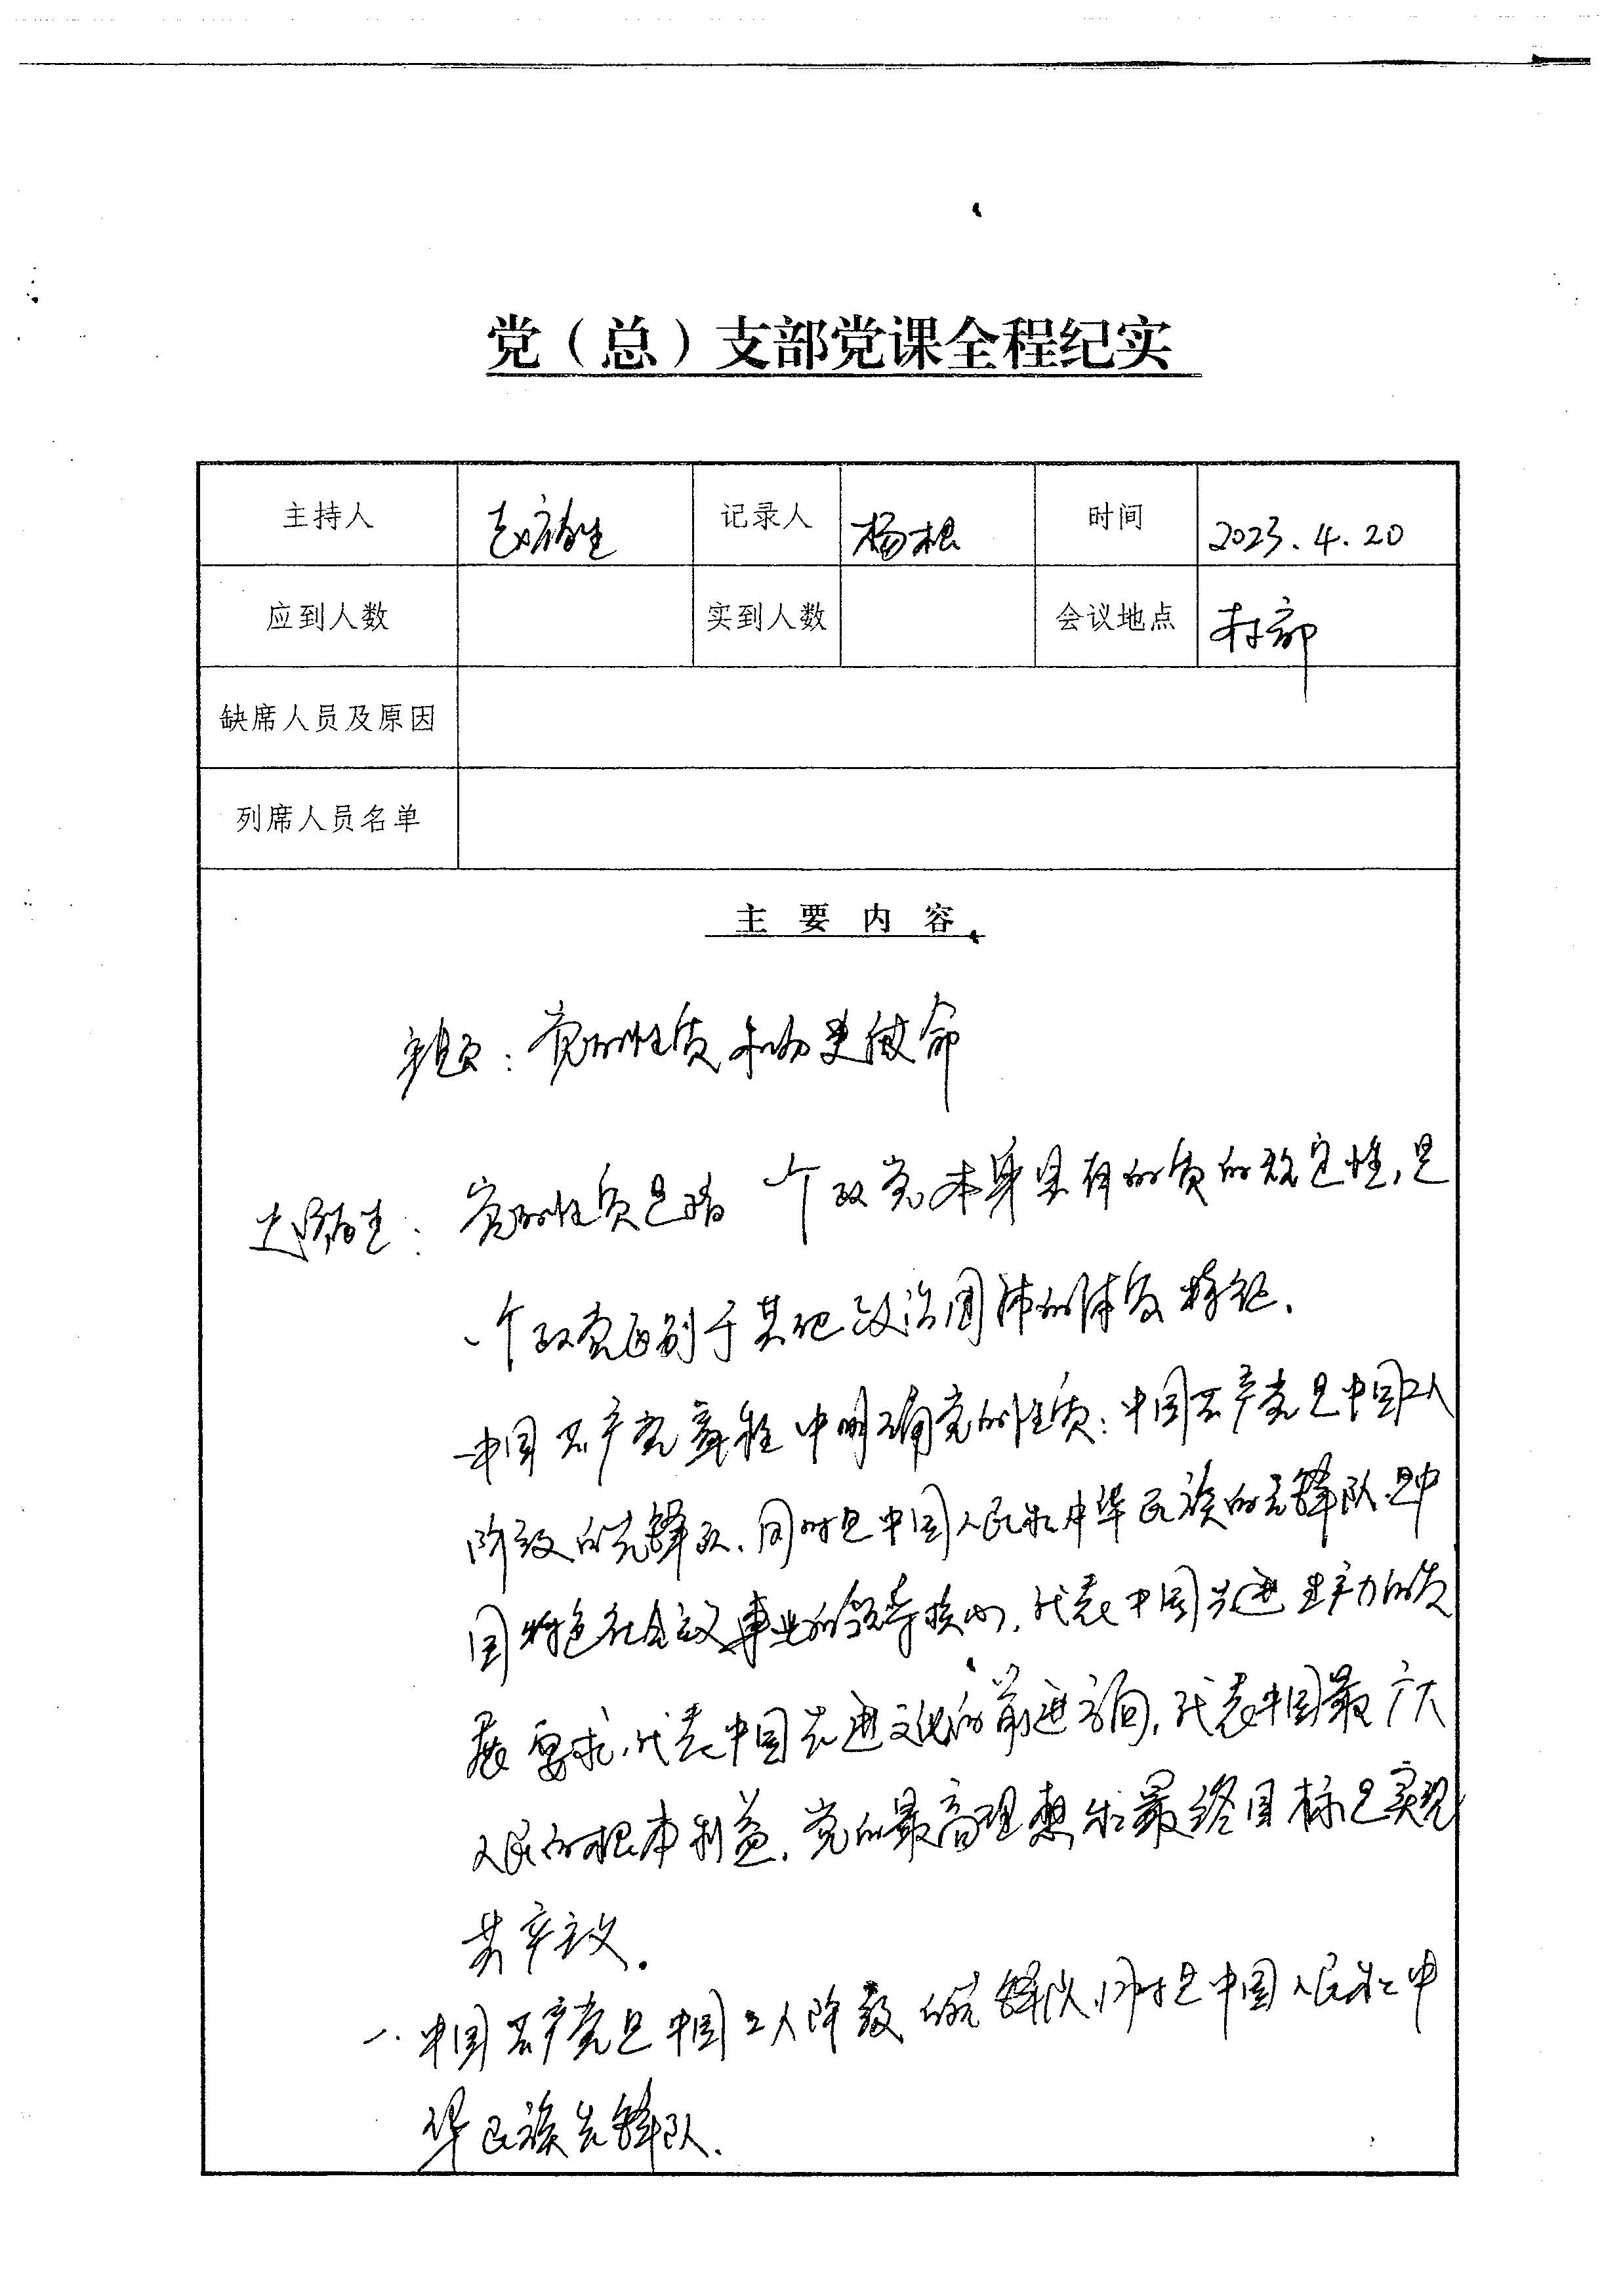 党（总）支部党课全程纪实
主持人 记录人 杨根 时间 2023.4.20
应到人数 实到人数 会议地点 村部
缺席人员及原因
列席人员名单
主要内容
主题：党的性质和历史使命
党的性质是指一个政党本身具有的质的规定性，是
一个政党区别于其他政治团体的本质特征.
中国共产党章程中明确党的性质：中国共产党是中国工人
阶级的先锋队.同时是中国人民和中华民族的先锋队.是中
国特色社会主义事业的领导核心.代表中国先进生产力的发
展要求,代表中国先进文化的前进方向,代表中国最广大
人民的根本利益.党的最高理想和最终目标是实现
共产主义.
一.中国共产党是中国工人阶级的先锋队,同时是中国人民和中
华民族先锋队.